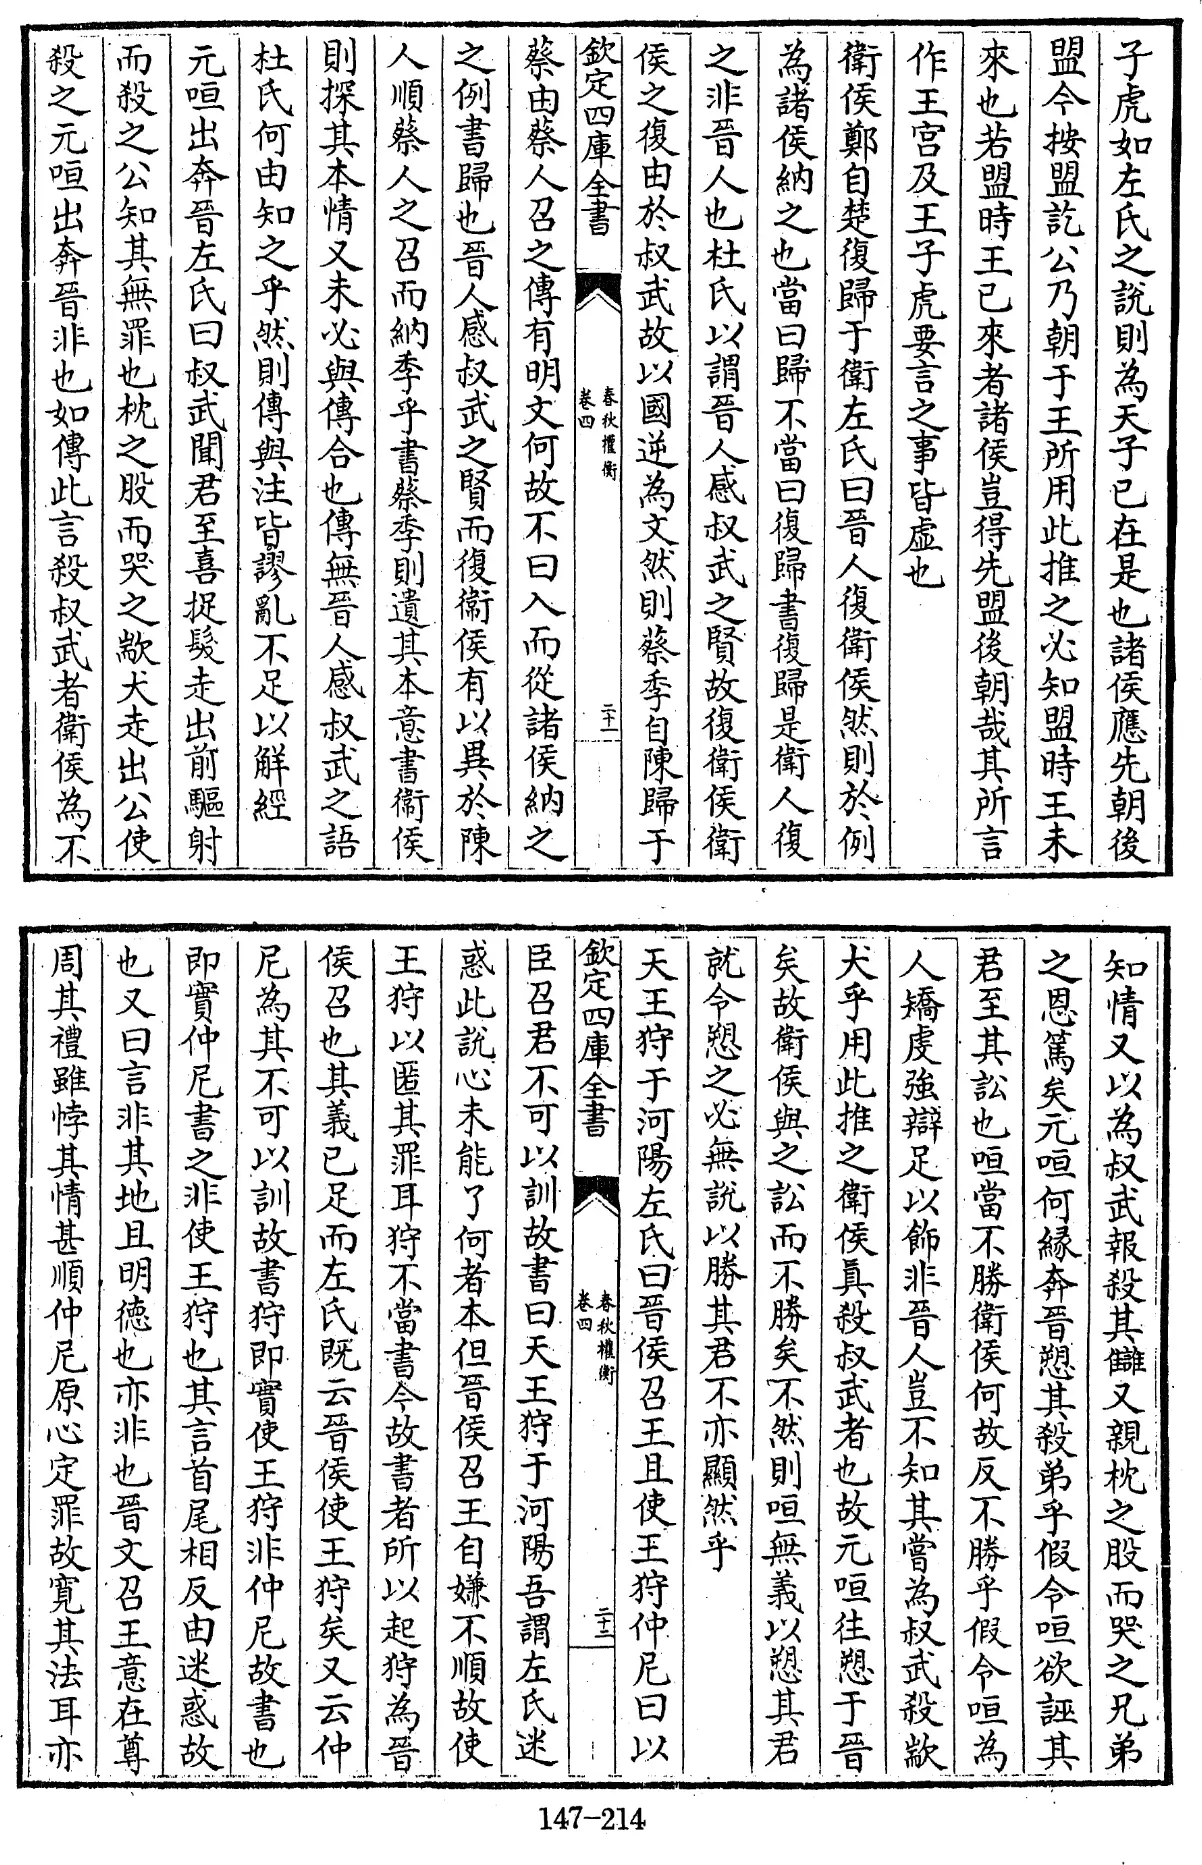 子虎如左氏之說則為天子已在是也諸侯應先朝後
盟今按盟訖公乃朝于王所用此推之必知盟時王未
來也若盟時王已來者諸侯豈得先盟後朝哉其所言
作王宫及王子虎要言之事皆虛也
衛侯鄭自楚復歸于衛左氏曰晉人復衛侯然則於例
為諸侯納之也當曰歸不當曰復歸書復歸是衛人復
之非晉人也杜氏以謂晉人感叔武之賢故復衛侯衛
侯之復由於叔武故以國逆為文然則蔡季自陳歸于
欽定四庫全書
春秋權衡
卷四
二十一
蔡由蔡人召之傳有明文何故不曰入而從諸侯納之
之例書歸也晉人感叔武之賢而復衛侯有以異於陳
人順蔡人之召而納季乎書蔡季則遺其本意書衛侯
則探其本情又未必與傳合也傳無晉人感叔武之語
杜氏何由知之乎然則傳與注皆謬亂不足以解經
元咺出奔晉左氏曰叔武聞君至喜捉髮走出前驅射
而殺之公知其無罪也枕之股而哭之歂犬走出公使
殺之元咺出奔晉非也如傳此言殺叔武者衛侯為不
知情又以為叔武報殺其讎又親枕之股而哭之兄弟
之恩篤矣元咺何緣奔晉愬其殺弟乎假令咺欲誣其
君至其訟也咺當不勝衛侯何故反不勝乎假令咺為
人矯虔強辯足以飾非晉人豈不知其嘗為叔武殺歂
犬乎用此推之衛侯真殺叔武者也故元咺往愬于晉
矣故衛侯與之訟而不勝矣不然則咺無義以愬其君
就令愬之必無說以勝其君不亦顯然乎
天王狩于河陽左氏曰晉侯召王且使王狩仲尼曰以
欽定四庫全書
春秋權衡
卷四
二十二
臣召君不可以訓故書曰天王狩于河陽吾謂左氏迷
惑此說心未能了何者本但晉侯召王自嫌不順故使
王狩以匿其罪耳狩不當書今故書者所以起狩為晉
侯召也其義已足而左氏既云晉侯使王狩矣又云仲
尼為其不可以訓故書狩即實使王狩非仲尼故書也
即實仲尼書之非使王狩也其言首尾相反由迷惑故
也又曰言非其地且明德也亦非也晉文召王意在尊
周其禮雖悖其情甚順仲尼原心定罪故寛其法耳亦
147-214